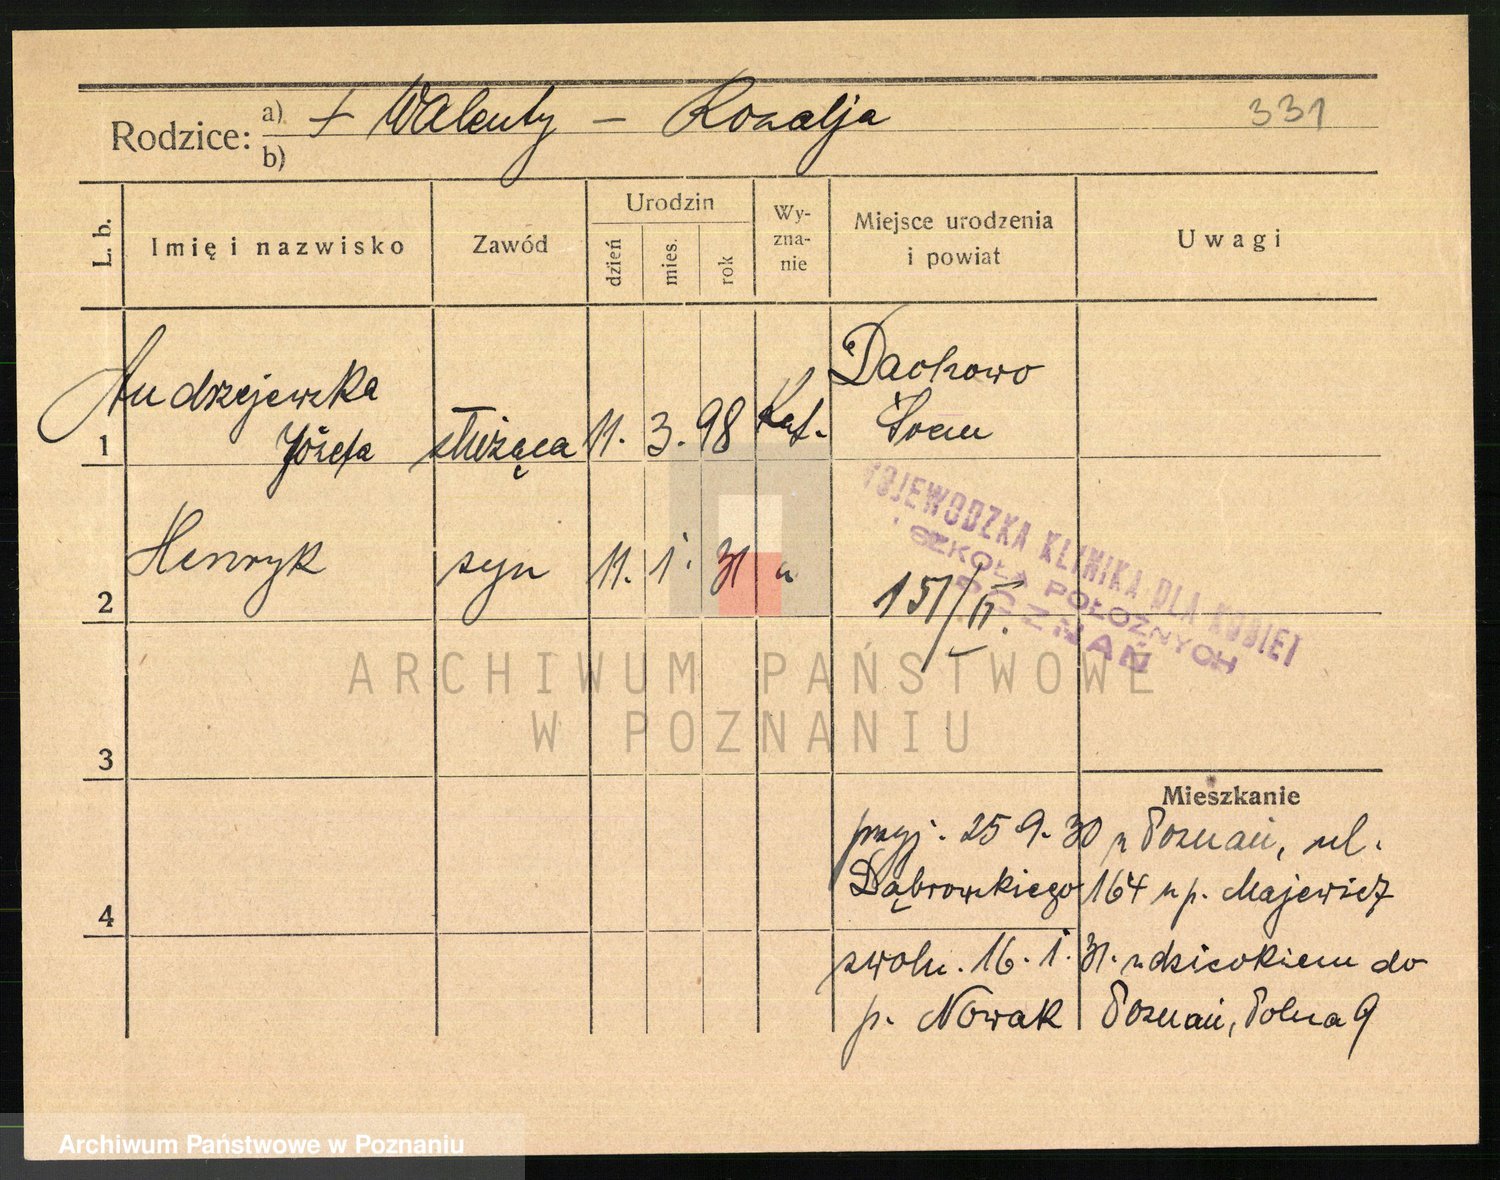 331
Rodzice: a) + Walenty – Rozalja
b)
L. b.
Imię i nazwisko
Zawód
Urodzin
dzień
mies.
rok
Wy-
zna-
nie
Miejsce urodzenia
i powiat
Uwagi
1 Andrzejewska
Józefa służąca 11. 3. 98 Kat.
Dachowo
Śrem
2 Henryk syn 11. 1. 31 "
151/II.
WOJEWODZKA KLINIKA DLA KOBIET
i SZKOŁA POŁOŻNYCH
POZNAŃ
3
4
Mieszkanie
przyj. 25 9. 30 z Poznań, ul.
Dąbrowskiego 164 u p. Majewicz
zwoln. 16. 1. 31. z dzieckiem do
p. Nowak Poznań, Polna 9
ARCHIWUM PAŃSTWOWE
W POZNANIU
Archiwum Państwowe w Poznaniu